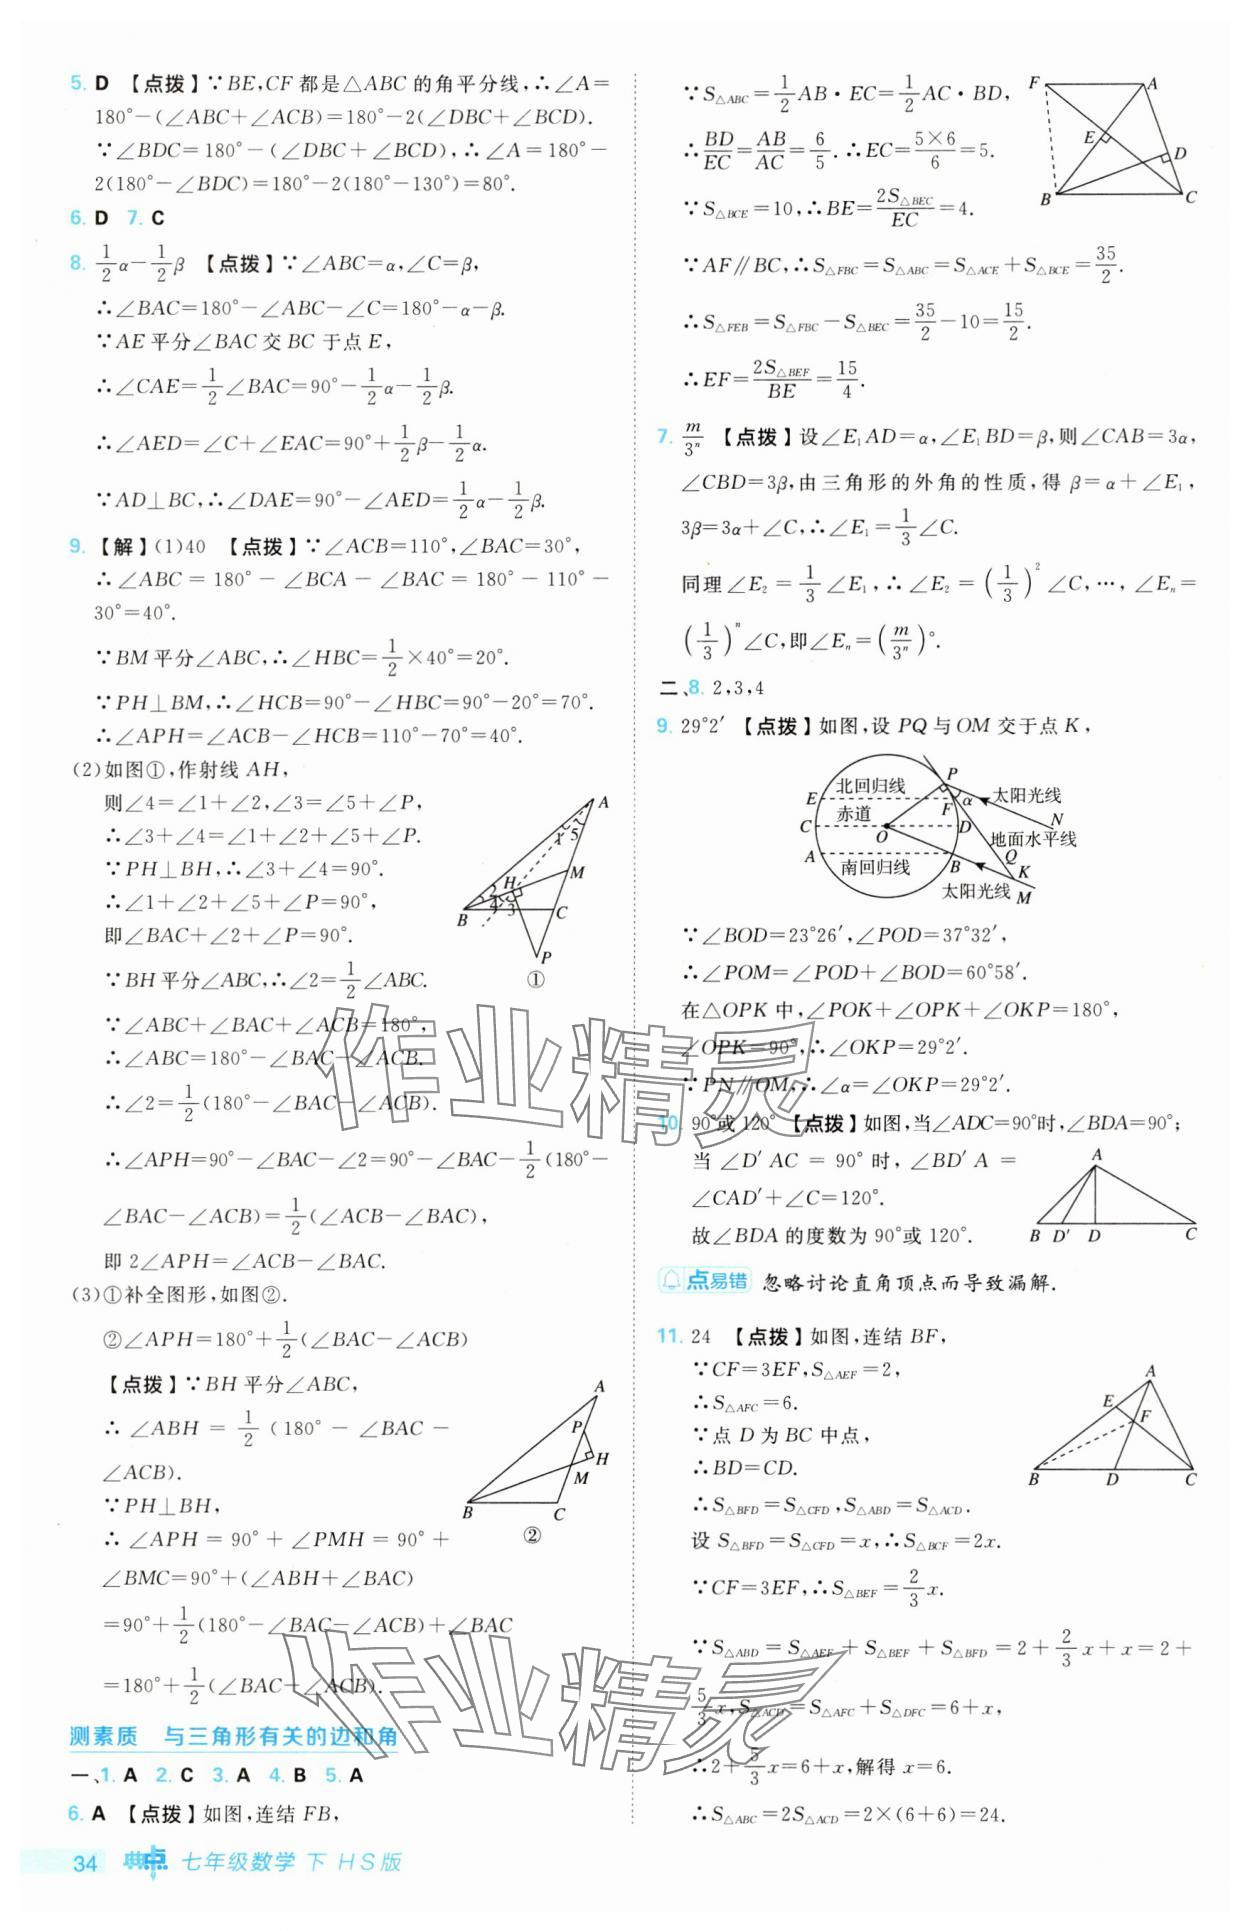 5. D 【点拨】∵BE,CF 都是△ABC 的角平分线,∴∠A=
180°-(∠ABC+∠ACB)=180°-2(∠DBC+∠BCD).
∵∠BDC=180°-(∠DBC+∠BCD),∴∠A=180°-
2(180°-∠BDC)=180°-2(180°-130°)=80°.
6. D 7. C
8. 1/2α-1/2β 【点拨】∵∠ABC=α,∠C=β,
∴∠BAC=180°-∠ABC-∠C=180°-α-β.
∵AE 平分∠BAC 交 BC 于点 E,
∴∠CAE=1/2∠BAC=90°-1/2α-1/2β.
∴∠AED=∠C+∠EAC=90°+1/2β-1/2α.
∵AD⊥BC,∴∠DAE=90°-∠AED=1/2α-1/2β.
9. 【解】(1)40 【点拨】∵∠ACB=110°,∠BAC=30°,
∴∠ABC=180°-∠BCA-∠BAC=180°-110°-
30°=40°.
∵BM 平分∠ABC,∴∠HBC=1/2×40°=20°.
∵PH⊥BM,∴∠HCB=90°-∠HBC=90°-20°=70°.
∴∠APH=∠ACB-∠HCB=110°-70°=40°.
(2)如图①,作射线 AH,
则∠4=∠1+∠2,∠3=∠5+∠P,
∴∠3+∠4=∠1+∠2+∠5+∠P.
∵PH⊥BH,∴∠3+∠4=90°.
∴∠1+∠2+∠5+∠P=90°,
即∠BAC+∠2+∠P=90°.
∵BH 平分∠ABC,∴∠2=1/2∠ABC.
∵∠ABC+∠BAC+∠ACB=180°,
∴∠ABC=180°-∠BAC-∠ACB.
∴∠2=1/2(180°-∠BAC-∠ACB).
∴∠APH=90°-∠BAC-∠2=90°-∠BAC-1/2(180°-
∠BAC-∠ACB)=1/2(∠ACB-∠BAC),
即 2∠APH=∠ACB-∠BAC.
A
1 5
H M
2
B 4 3 C
P
①
(3)①补全图形,如图②.
②∠APH=180°+1/2(∠BAC-∠ACB)
【点拨】∵BH 平分∠ABC,
∴∠ABH=1/2(180°-∠BAC-
∠ACB).
∵PH⊥BH,
∴∠APH=90°+∠PMH=90°+
∠BMC=90°+(∠ABH+∠BAC)
=90°+1/2(180°-∠BAC-∠ACB)+∠BAC
=180°+1/2(∠BAC-∠ACB).
A
P
H
M
B C
②
测素质 与三角形有关的边和角
一、1. A 2. C 3. A 4. B 5. A
6. A 【点拨】如图,连结 FB,
34 典点 七年级数学 下 HS版
∵S△ABC=1/2AB·EC=1/2AC·BD,
∴BD/EC=AB/AC=6/5.∴EC=5×6/6=5.
∵S△BCE=10,∴BE=2S△BEC/EC=4.
∵AF∥BC,∴S△FBC=S△ABC=S△ACE+S△BCE=35/2.
∴S△FEB=S△FBC-S△BEC=35/2-10=15/2.
∴EF=2S△BEF/BE=15/4.
F A
E D
B C
7. m/3ⁿ 【点拨】设∠E₁AD=α,∠E₁BD=β,则∠CAB=3α,
∠CBD=3β,由三角形的外角的性质,得 β=α+∠E₁,
3β=3α+∠C,∴∠E₁=1/3∠C.
同理∠E₂=1/3∠E₁,∴∠E₂=(1/3)²∠C,…,∠Eₙ=
(1/3)ⁿ∠C,即∠Eₙ=(m/3ⁿ)°.
二、8. 2,3,4
9. 29°2′ 【点拨】如图,设 PQ 与 OM 交于点 K,
P
E 北回归线 F α 太阳光线
C 赤道 D N
O 地面水平线
A 南回归线 B Q
K
太阳光线 M
∵∠BOD=23°26′,∠POD=37°32′,
∴∠POM=∠POD+∠BOD=60°58′.
在△OPK 中,∠POK+∠OPK+∠OKP=180°,
∠OPK=90°,∴∠OKP=29°2′.
∵PN∥OM,∴∠α=∠OKP=29°2′.
10. 90°或120° 【点拨】如图,当∠ADC=90°时,∠BDA=90°;
当∠D′AC=90°时,∠BD′A=
∠CAD′+∠C=120°.
故∠BDA 的度数为 90°或 120°.
A
B D′ D C
点易错 忽略讨论直角顶点而导致漏解.
11. 24 【点拨】如图,连结 BF,
∵CF=3EF,S△AEF=2,
∴S△AFC=6.
∵点 D 为 BC 中点,
∴BD=CD.
∴S△BFD=S△CFD,S△ABD=S△ACD.
设 S△BFD=S△CFD=x,∴S△BCF=2x.
∵CF=3EF,∴S△BEF=2/3x.
∵S△ABD=S△AEF+S△BEF+S△BFD=2+2/3x+x=2+
5/3x,S△ACD=S△AFC+S△DFC=6+x,
∴2+5/3x=6+x,解得 x=6.
∴S△ABC=2S△ACD=2×(6+6)=24.
A
E F
B D C
作业精灵
作业精灵